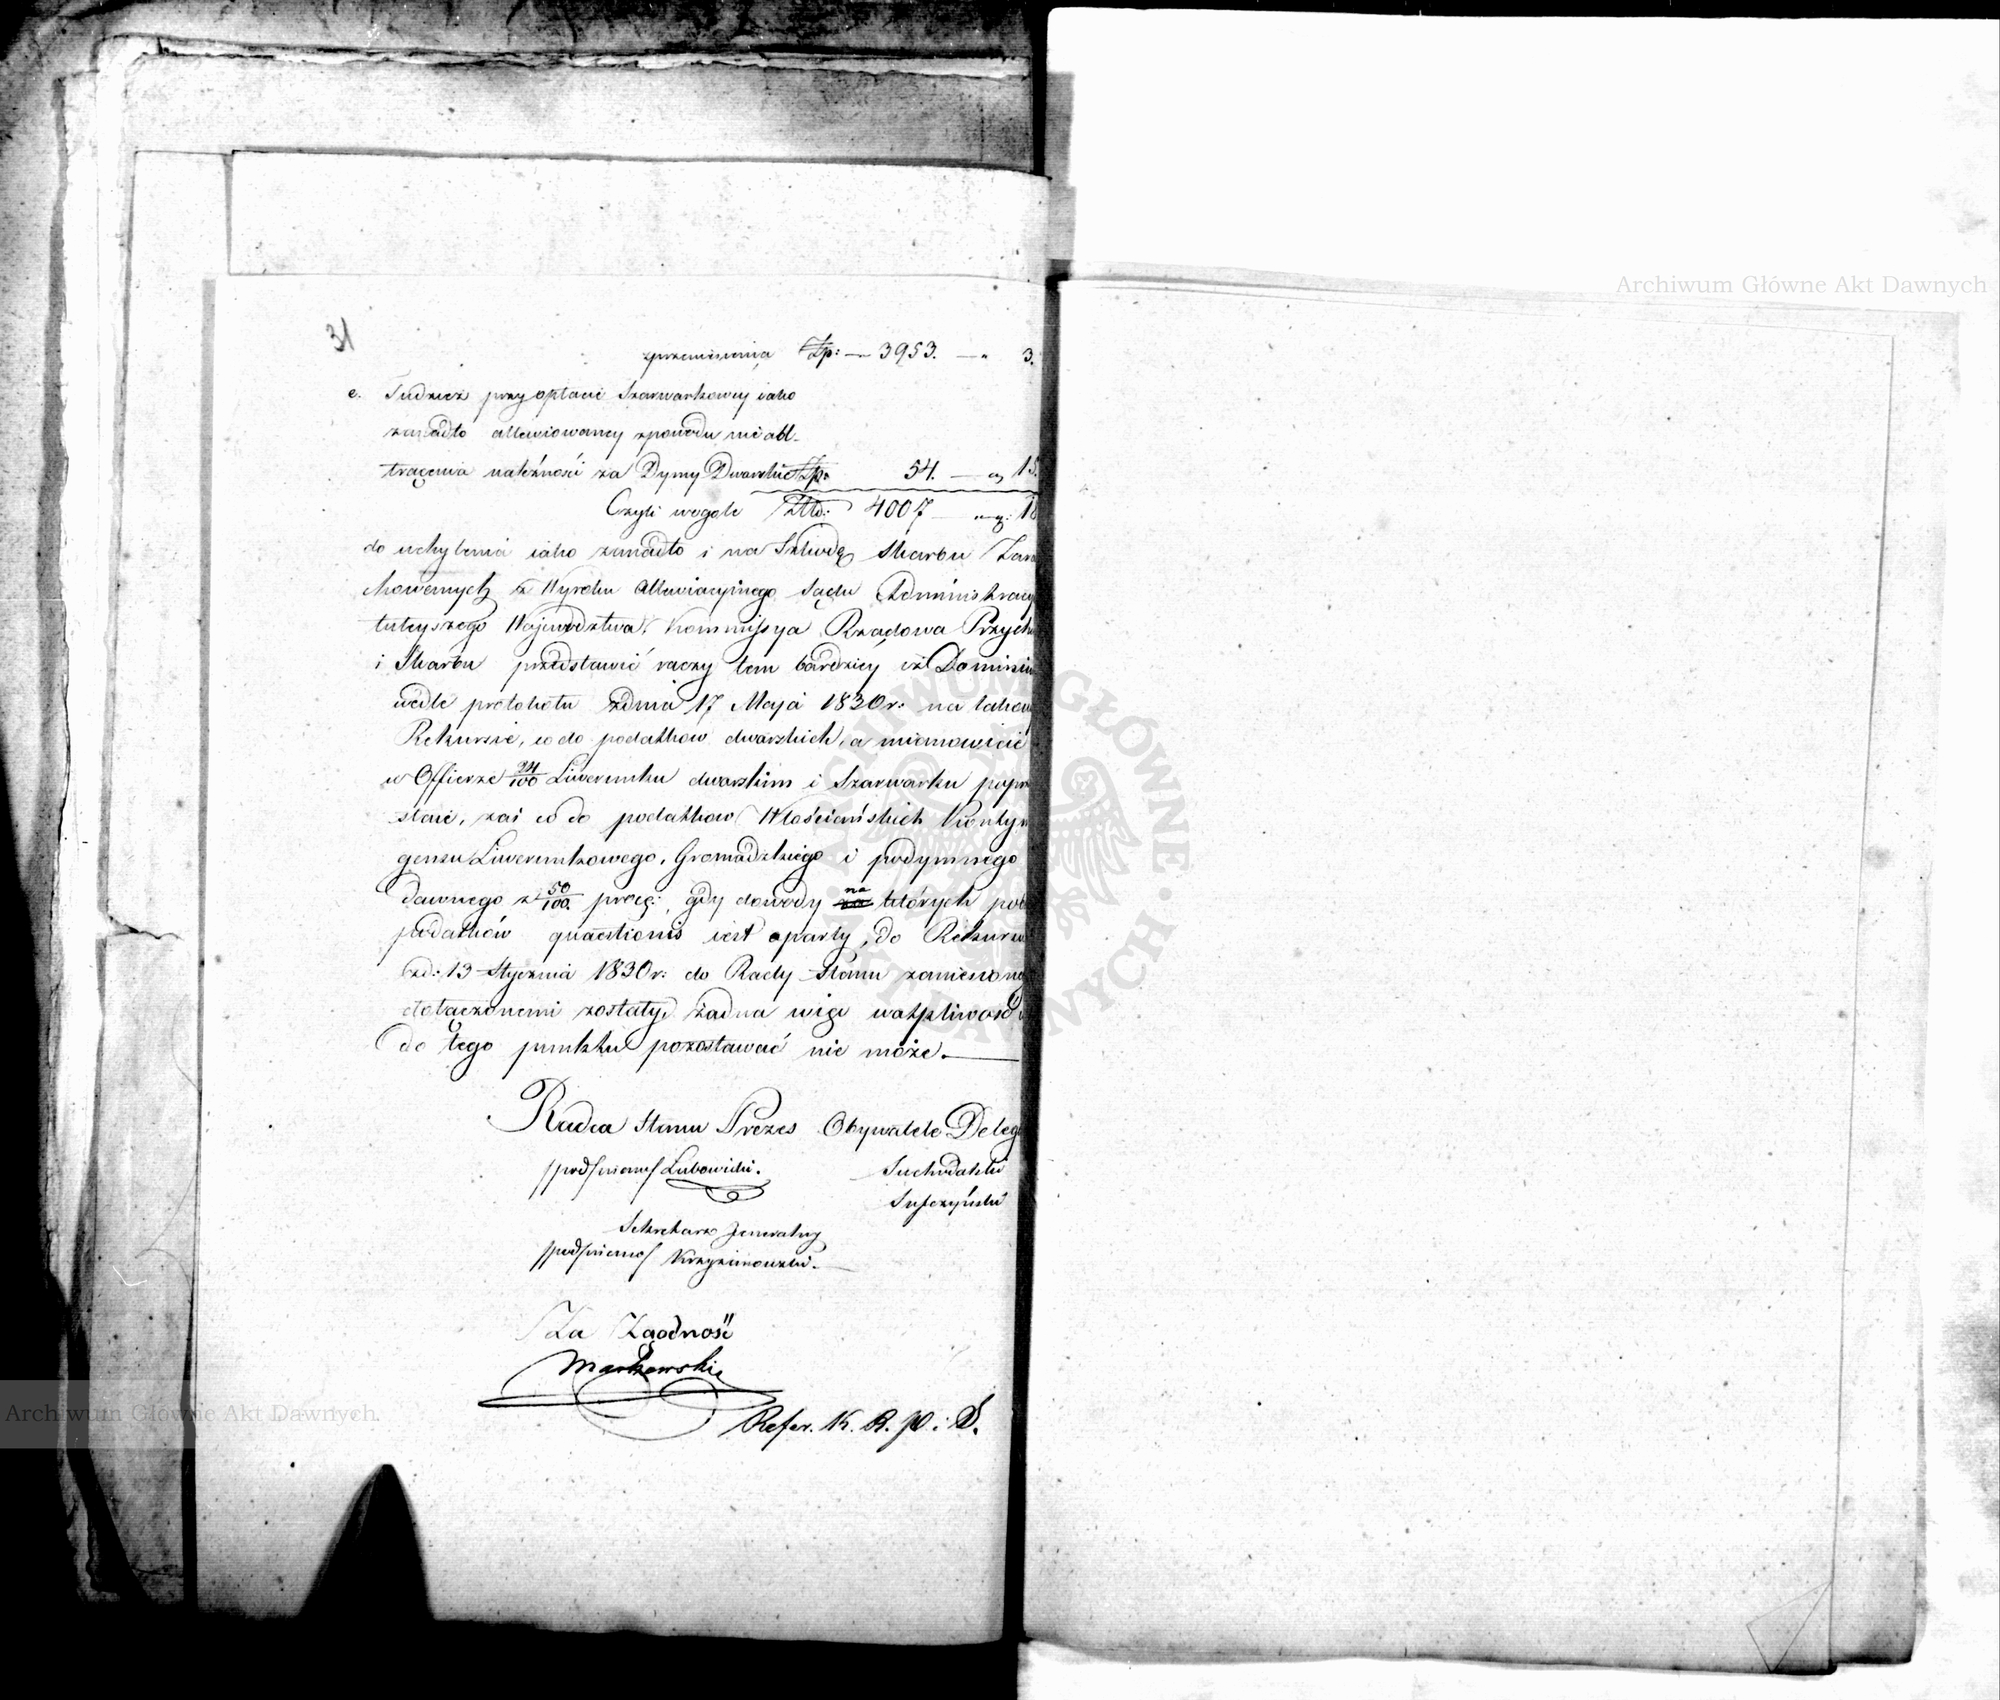 31
zprzeniesienia Zp: — 3953. — „ 3.
e. Tudzież przy opłacie Szarwarkowey iako
zanadto allewiowaney zpowodu nie abl-
trącenia należności za Dymy Dworskie Zp: 54. — „ 15.
Czyli wogóle Złło: 4007 — „ g: 18
do uchylenia iako zanadto i na Szkodę Skarbu Zara
chowanych z Wyroku Allewiacyinego Sądu Administracy
tuteyszego Województwa, Kommissya Rządowa Przych
i Skarbu przedstawić raczy tem bardziéy iż Dominiu
wedle protokołu zdnia 17 Maja 1830 r: na takow
Rekursie, co do podatkow dworskich, a mianowicie
w Offierze 24/100 Liwerunku dworskim i Szarwarku poprz
staie, zaś co do podatkow Włościańskich Kontyn
gensu Liwerunkowego, Gromadzkiego i podymnego
dawnego z 50/100. proc:, gdy dowody na których pob
podatków quaestionis iest oparty, do Rekursu
zd: 13 Stycznia 1830 r: do Rady Stanu zaniesione
dołączonemi zostały, żadna więc wątpliwość
do tego punktu pozostawać nie może. —
Radca Stanu Prezes Obywatele Deleg
/podpisano/ Lubowidzki. Suchodolski
Sufczyński
Sekretarz Jeneralny
/podpisano/ Krzyżanowski. —
Za Zgodność
Markowski
Refer. K. R. P. i S.
Archiwum Główne Akt Dawnych
Archiwum Główne Akt Dawnych
ARCHIWUM GŁÓWNE AKT DAWNYCH